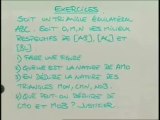 EXERCICES
SOIT UN TRIANGLE ÉQUILATÉRAL
ABC. SOIT O, M, N LES MILIEUX
RESPECTIFS DE [AB], [AC] ET
[BC]
1) FAIRE UNE FIGURE
2) QUELLE EST LA NATURE DE AMO
3) EN DÉDUIRE LA NATURE DES
TRIANGLES MON, CMN, NOB.
4) QUE PEUT ON DÉDUIRE DE
CMO ET MOB ? JUSTIFIER.